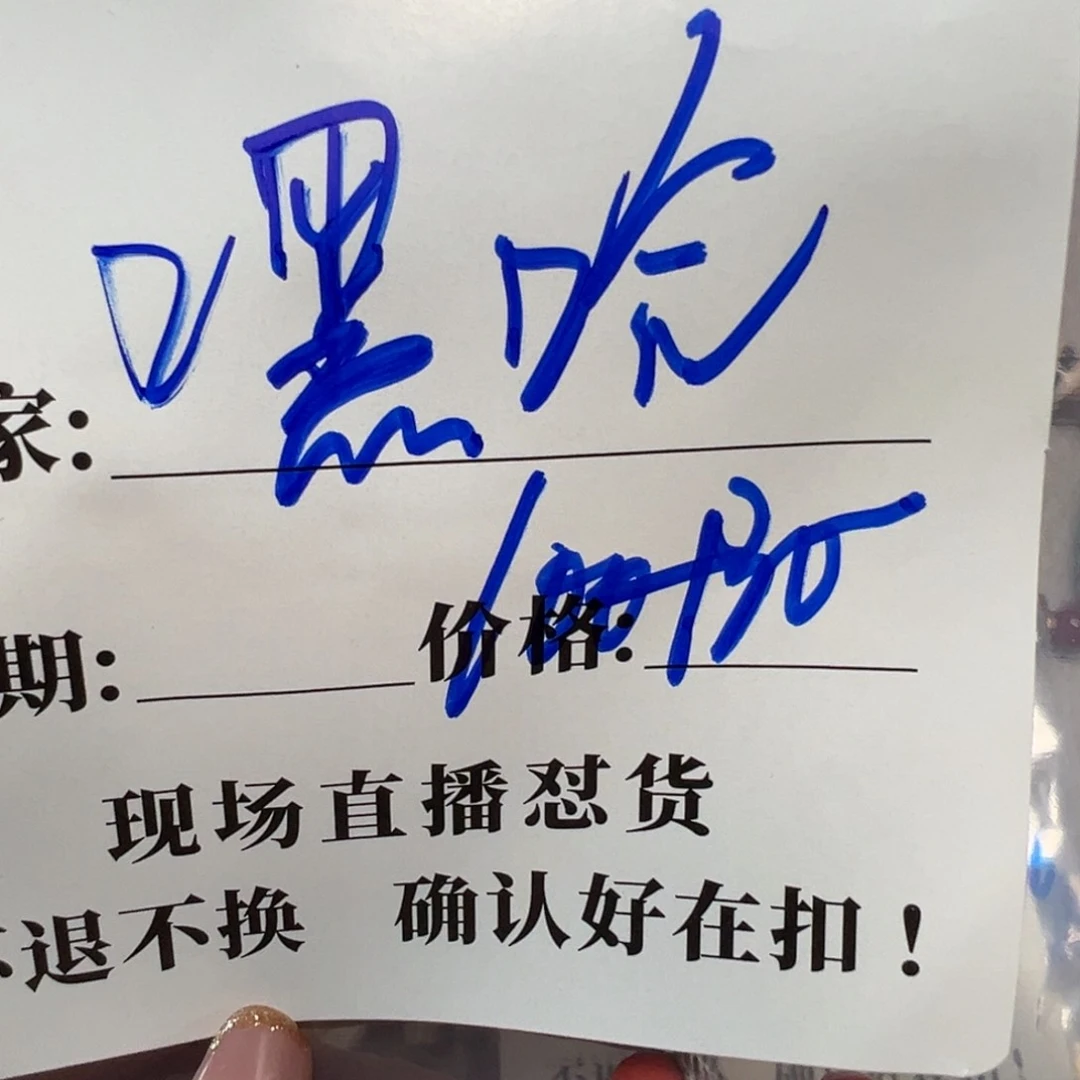 家：嘿哈
期： 价格：
现场直播怼货
退不换 确认好在扣！